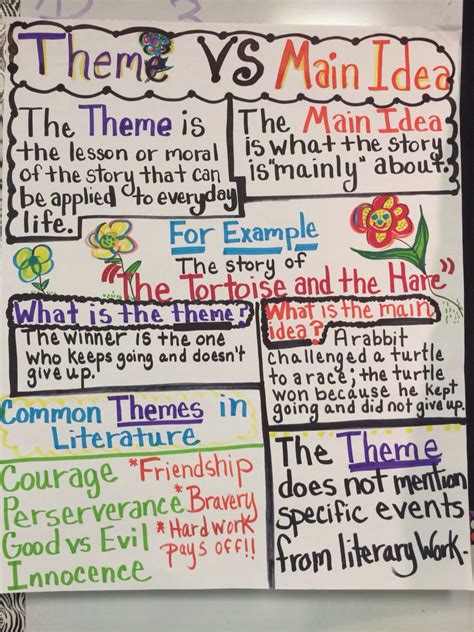 Theme VS Main Idea
The Theme is
the lesson or moral
of the story that can
be applied to everyday
life.
The Main Idea
is what the story
is "mainly" about.
For Example
The story of
"The Tortoise and the Hare"
What is the theme?
The winner is the one
who keeps going and doesn't
give up.
What is the main
idea? A rabbit
challenged a turtle
to a race; the turtle
won because he kept
going and did not give up.
Common Themes in
Literature
Courage *Friendship
Perserverance *Bravery
Good vs Evil *Hard work
Innocence pays off!!
The Theme
does not mention
specific events
from literary work.